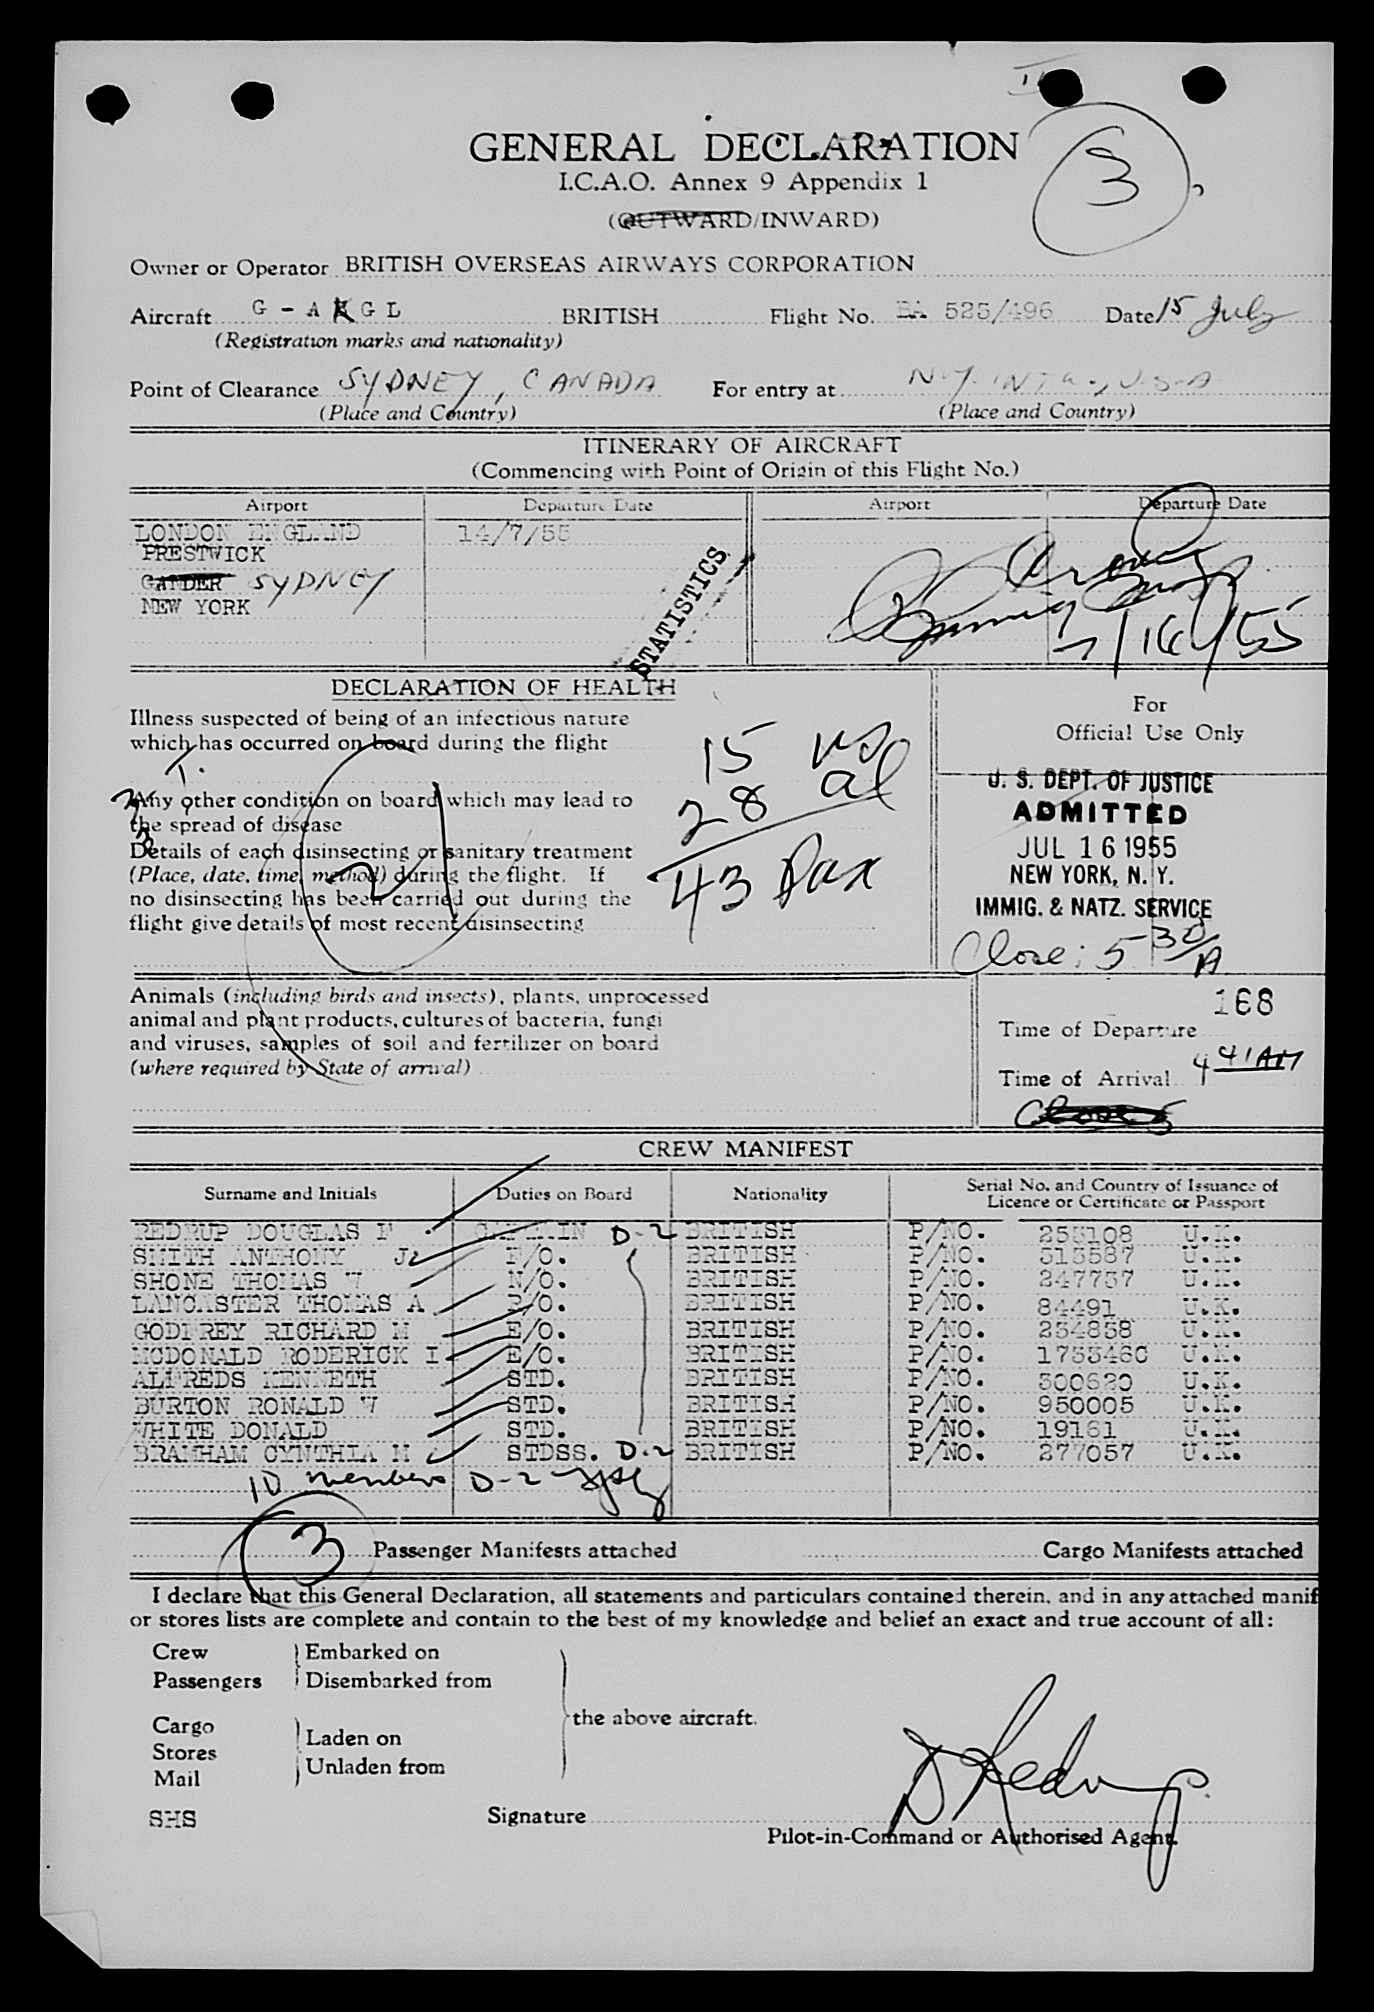 3
GENERAL DECLARATION
I.C.A.O. Annex 9 Appendix 1
(OUTWARD/INWARD)
Owner or Operator BRITISH OVERSEAS AIRWAYS CORPORATION
Aircraft G - A K G L BRITISH Flight No. BA 525/496 Date 15 July
(Registration marks and nationality)
Point of Clearance SYDNEY, CANADA For entry at N.Y. U.S.A
(Place and Country) (Place and Country)
ITINERARY OF AIRCRAFT
(Commencing with Point of Origin of this Flight No.)
Airport Departure Date Airport Departure Date
LONDON ENGLAND 14/7/55
PRESTWICK
GANDER SYDNEY
NEW YORK
STATISTICS
7/16/55
DECLARATION OF HEALTH
Illness suspected of being of an infectious nature
which has occurred on board during the flight
Any other condition on board which may lead to
the spread of disease
Details of each disinsecting or sanitary treatment
(Place, date, time, method) during the flight. If
no disinsecting has been carried out during the
flight give details of most recent disinsecting
15
28 al
43 Pax
For
Official Use Only
U. S. DEPT. OF JUSTICE
ADMITTED
JUL 16 1955
NEW YORK, N. Y.
IMMIG. & NATZ. SERVICE
Close: 5 30/A
Animals (including birds and insects), plants, unprocessed
animal and plant products, cultures of bacteria, fungi
and viruses, samples of soil and fertilizer on board
(where required by State of arrival)
168
Time of Departure
Time of Arrival 4 41 AM
CREW MANIFEST
Surname and Initials Duties on Board Nationality Serial No. and Country of Issuance of
Licence or Certificate or Passport
REDRUP DOUGLAS F CAPTAIN D-2 BRITISH P/NO. 255108 U.K.
SMITH ANTHONY J F/O. BRITISH P/NO. 313587 U.K.
SHONE THOMAS W N/O. BRITISH P/NO. 247757 U.K.
LANCASTER THOMAS A R/O. BRITISH P/NO. 84491 U.K.
GODFREY RICHARD M E/O. BRITISH P/NO. 254858 U.K.
MCDONALD RODERICK I E/O. BRITISH P/NO. 1755460 U.K.
ALFREDS KENNETH STD. BRITISH P/NO. 500620 U.K.
BURTON RONALD W STD. BRITISH P/NO. 950005 U.K.
WHITE DONALD STD. BRITISH P/NO. 19161 U.K.
BRAMHAM CYNTHIA M STDSS. D-2 BRITISH P/NO. 277057 U.K.
10 members D-2
3 Passenger Manifests attached Cargo Manifests attached
I declare that this General Declaration, all statements and particulars contained therein, and in any attached manif
or stores lists are complete and contain to the best of my knowledge and belief an exact and true account of all:
Crew Embarked on
Passengers Disembarked from
the above aircraft.
Cargo Laden on
Stores
Unladen from
Mail
SHS Signature D Redrup
Pilot-in-Command or Authorised Agent.